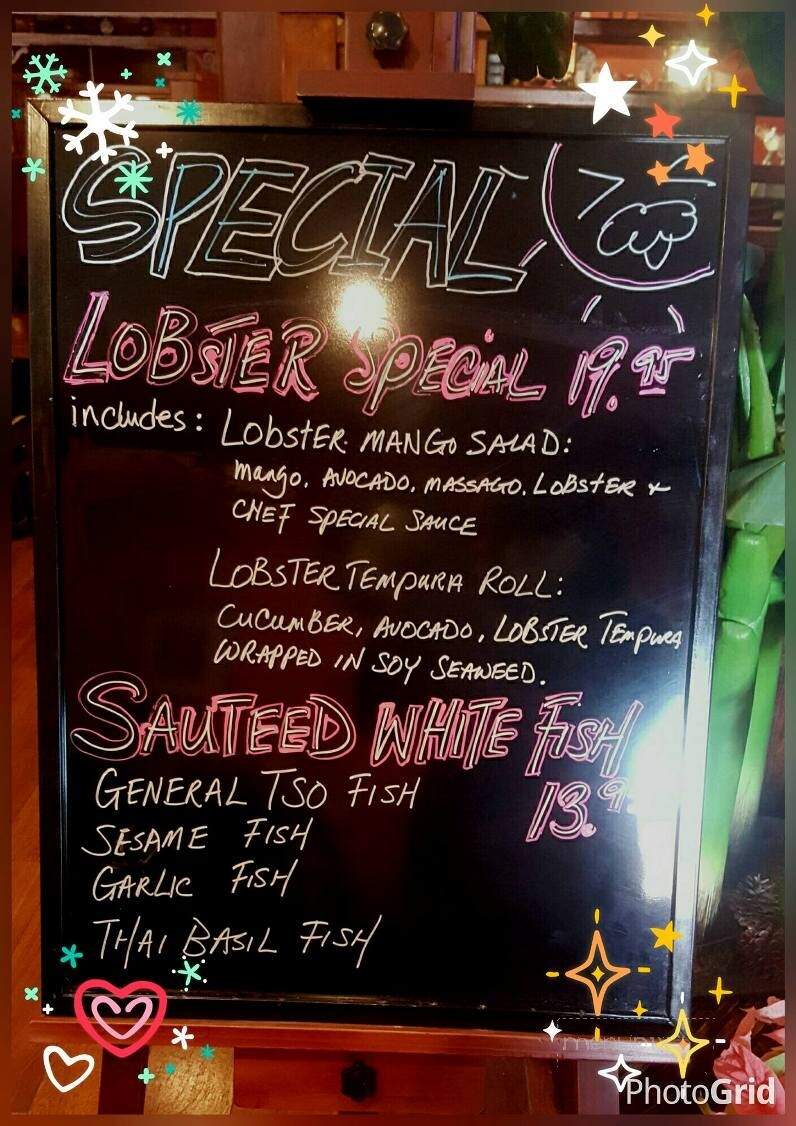 SPECIAL
LOBSTER SPECIAL 19.95
includes: LOBSTER MANGO SALAD:
mango, AVOCADO, MASSAGO, LOBSTER &
CHEF SPECIAL SAUCE
LOBSTER TEMPURA ROLL:
CUCUMBER, AVOCADO, LOBSTER TEMPURA
WRAPPED IN SOY SEAWEED.
SAUTEED WHITE FISH
GENERAL TSO FISH 13.9
SESAME FISH
GARLIC FISH
THAI BASIL FISH
PhotoGrid